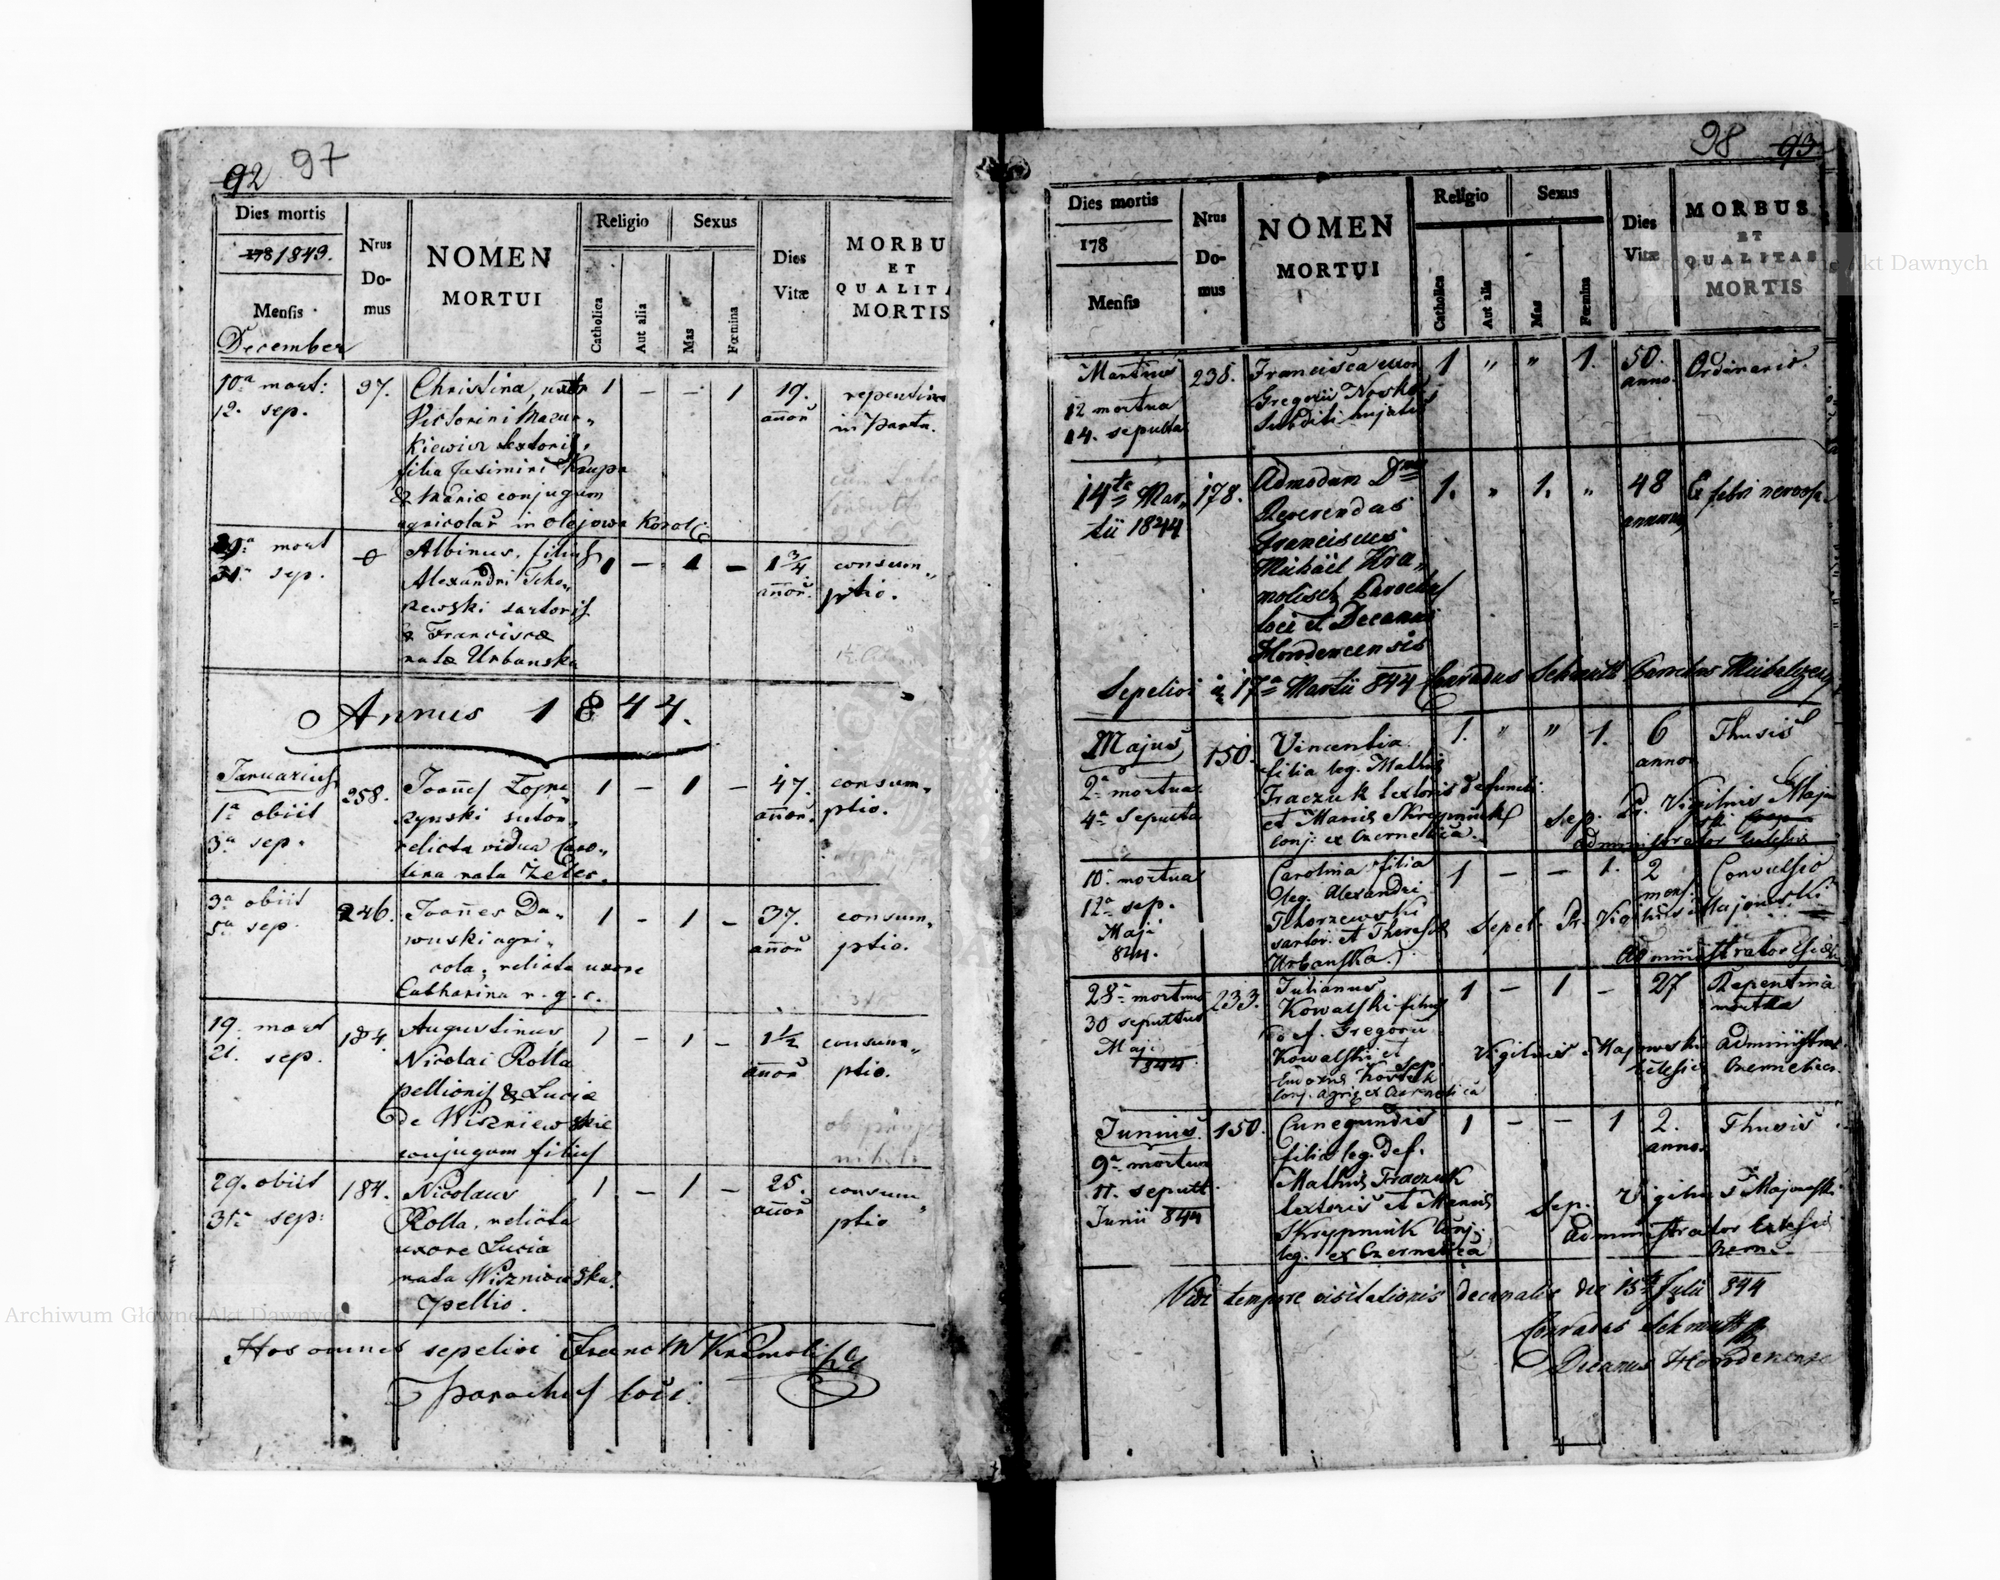 92 97
Dies mortis
178 1843.
Mensis
December
Nrus Domus
NOMEN
MORTUI
Religio
Catholica
Aut alia
Sexus
Mas
Fœmina
Dies Vitæ
MORBU
ET
QUALITA
MORTIS
10a mort: 37. Christina, uxor 1 – – 1 19. repentina
12. sep. Victorini Mazur- añor in partu.
kiewicz textoris,
filia Casimiri Krupa
& Mariæ conjugum
agricolar in Olejowa Korol.
29a mort 0 Albinus, filius 1 – 1 – 1 3/4 consum-
31a sep. Alexandri Tcho- añor. ptio.
rzewski sartoris
& Franciscæ
natæ Urbanska
Annus 1844.
Januarius 258. Joañes 1 – 1 – 47. consum-
1a obiit rynski sutor, añor. ptio.
3a sep. relicta vidua Caro-
lina nata
3a obiit 246. Joañes Da- 1 – 1 – 37. consum-
5a sep. wuski agri- añor ptio.
cola, relicta uxore
Catharina r. g. c.
19. mort 184. Augustinus 1 – 1 – 1 1/2 consum-
21. sep. Nicolai Rolla añor ptio.
pellionis & Lucia
de Wiszniewskie
conjugum filius
29. obiit 184. Nicolaus 1 – 1 – 25. consum-
31a sep: Rolla, relicta añor ptio
uxore Lucia
nata Wiszniowska.
pellio.
Hos omnes sepelivi Franc M Kramolisch
parochus loci.
98 93
Dies mortis
178
Mensis
Nrus Domus
NOMEN
MORTUI
Religio
Catholica
Aut alia
Sexus
Mas
Fœmina
Dies Vitæ
MORBUS
ET
QUALITAS
MORTIS
Martius 238. Francisca uxor 1 " " 1. 50. Ordinario.
12 mortua Gregorii anno.
14. sepulta Subditi hujatis
14ta Mar- 178. Admodum Dnus 1. " 1. " 48 Ex febri nervosa
tii 1844 Reverendus annorum
Franciscus
Michäel Kra-
molisch Parochus
loci et Decanus
Horodencensis
Sepelivi 17a Martii 844 Conradus Schmidt Parochus
Majus 150. Vincentia 1. " " 1. 6 Thusis
2a mortua filia leg. Mathiæ anno.
4a Sepulta Fraczuk textoris defuncti
et Mariæ Skrypniuk Sep. Pr. Vigilius Majew
conj. ex Czernelica. ski
Administrator Ecclesiæ
10a mortua Carolina filia 1 – – 1. 2 Convulsio
12a sep. leg. Alexandri mens.
Maji Tchorzewski Sepel. Pr. Vigilius Majewski
844. sartor. et Theresiæ
Urbanska. Administrator Ecclesiæ
28a mortuus 233. Julianus 1 – 1 – 27 Repentina
30 sepultus Kowalski filius mortua
Maji Gregorii
844 Kowalski et sep. Vigilius Majewski Administrat.
Ecclesiæ Czernelicen.
conj. agric. ex Czernelica
Junius 150. Cunegundis 1 – – 1 2. Thusis
9a mortua filia leg. def. anno.
11. sepult Mathiæ Fraczuk
Junii 844 textoris et Mariæ Sep. Vigilius Majewski
Skrypniuk Conj. Administrator Ecclesiæ
leg. ex Czernelica Czern.
Vidi tempore visitationis decanalis die 15a Julii 844
Conradus Schmidt
Decanus Horodenense
Archiwum Główne Akt Dawnych
Archiwum Główne Akt Dawnych